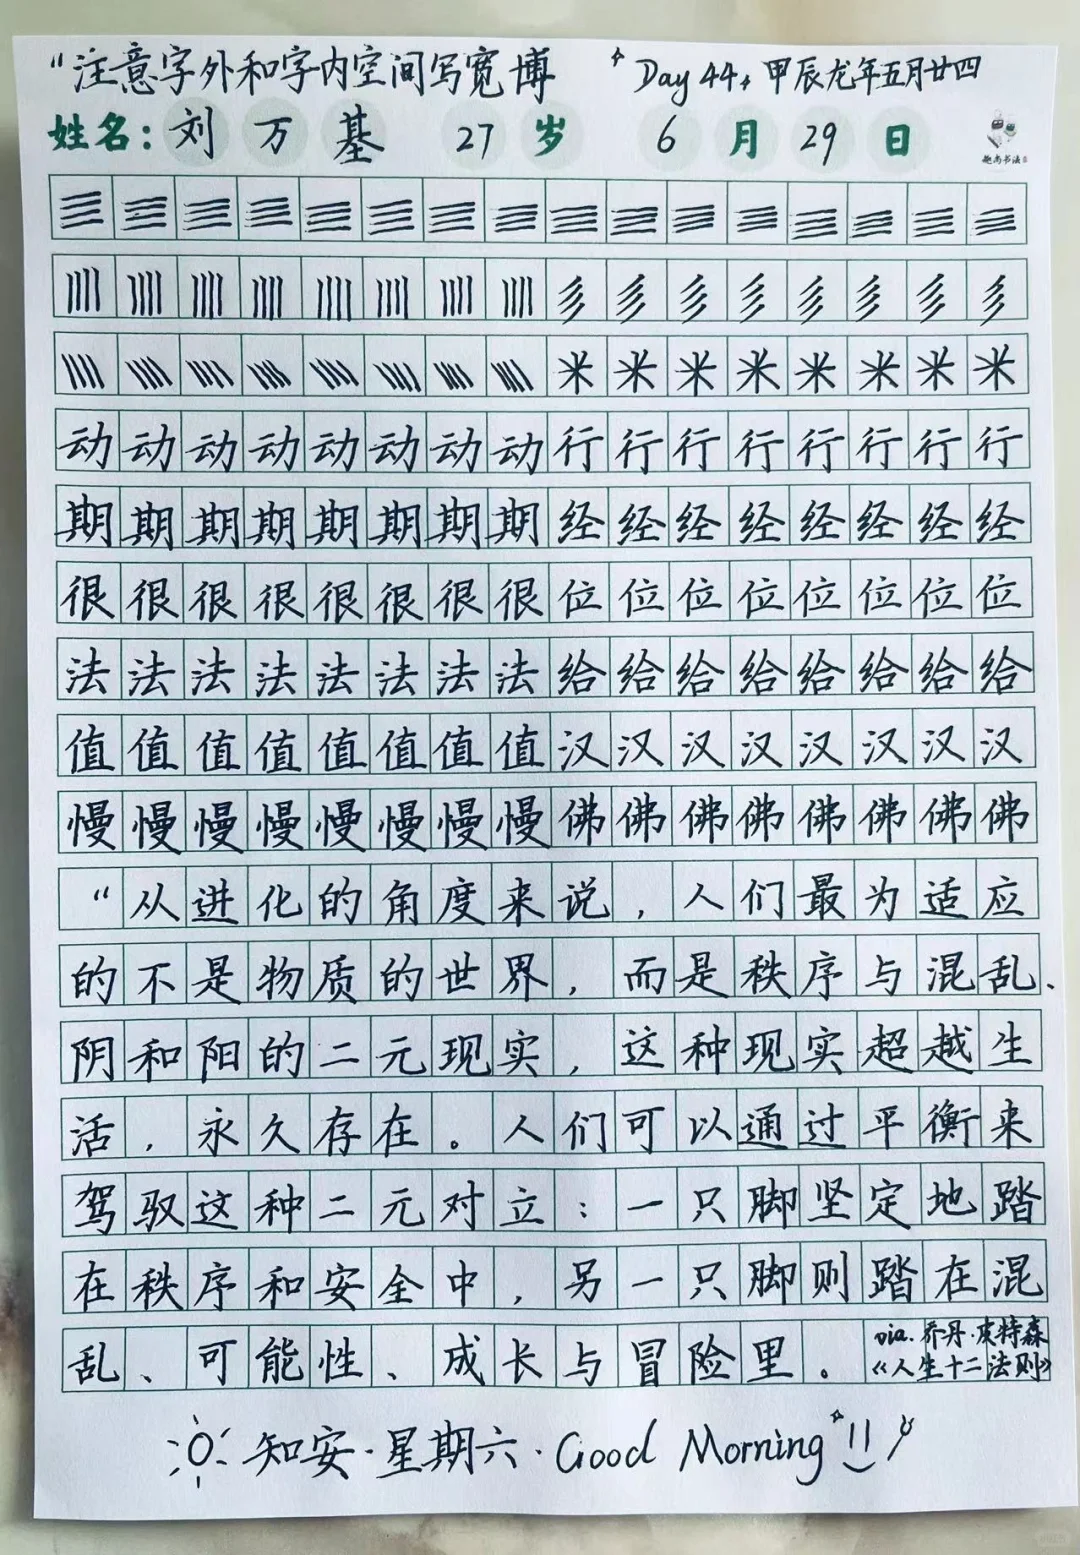 “注意字外和字内空间写宽博 Day 44, 甲辰龙年五月廿四
姓名：刘万基 27岁 6月29日
趣尚书法
三三三三三三三三三三三三三三三三
彡彡彡彡彡彡彡彡
米米米米米米米米
动动动动动动动动行行行行行行行行
期期期期期期期期经经经经经经经经
很很很很很很很很位位位位位位位位
法法法法法法法法给给给给给给给给
值值值值值值值值汉汉汉汉汉汉汉汉
慢慢慢慢慢慢慢慢佛佛佛佛佛佛佛佛
“从进化的角度来说，人们最为适应
的不是物质的世界，而是秩序与混乱、
阴和阳的二元现实，这种现实超越生
活，永久存在。人们可以通过平衡来
驾驭这种二元对立：一只脚坚定地踏
在秩序和安全中，另一只脚则踏在混
乱、可能性、成长与冒险里。
via. 乔丹·皮特森
《人生十二法则》
知安·星期六·Good Morning